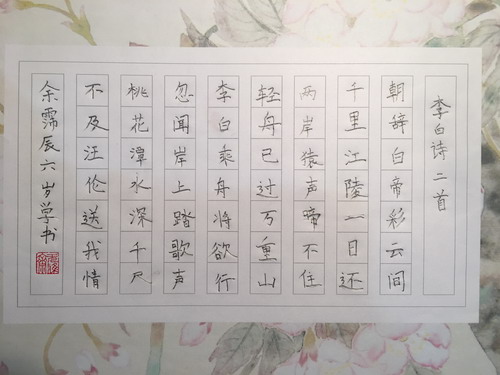 李白诗二首
朝辞白帝彩云间
千里江陵一日还
两岸猿声啼不住
轻舟已过万重山
李白乘舟将欲行
忽闻岸上踏歌声
桃花潭水深千尺
不及汪伦送我情
余霈辰六岁学书